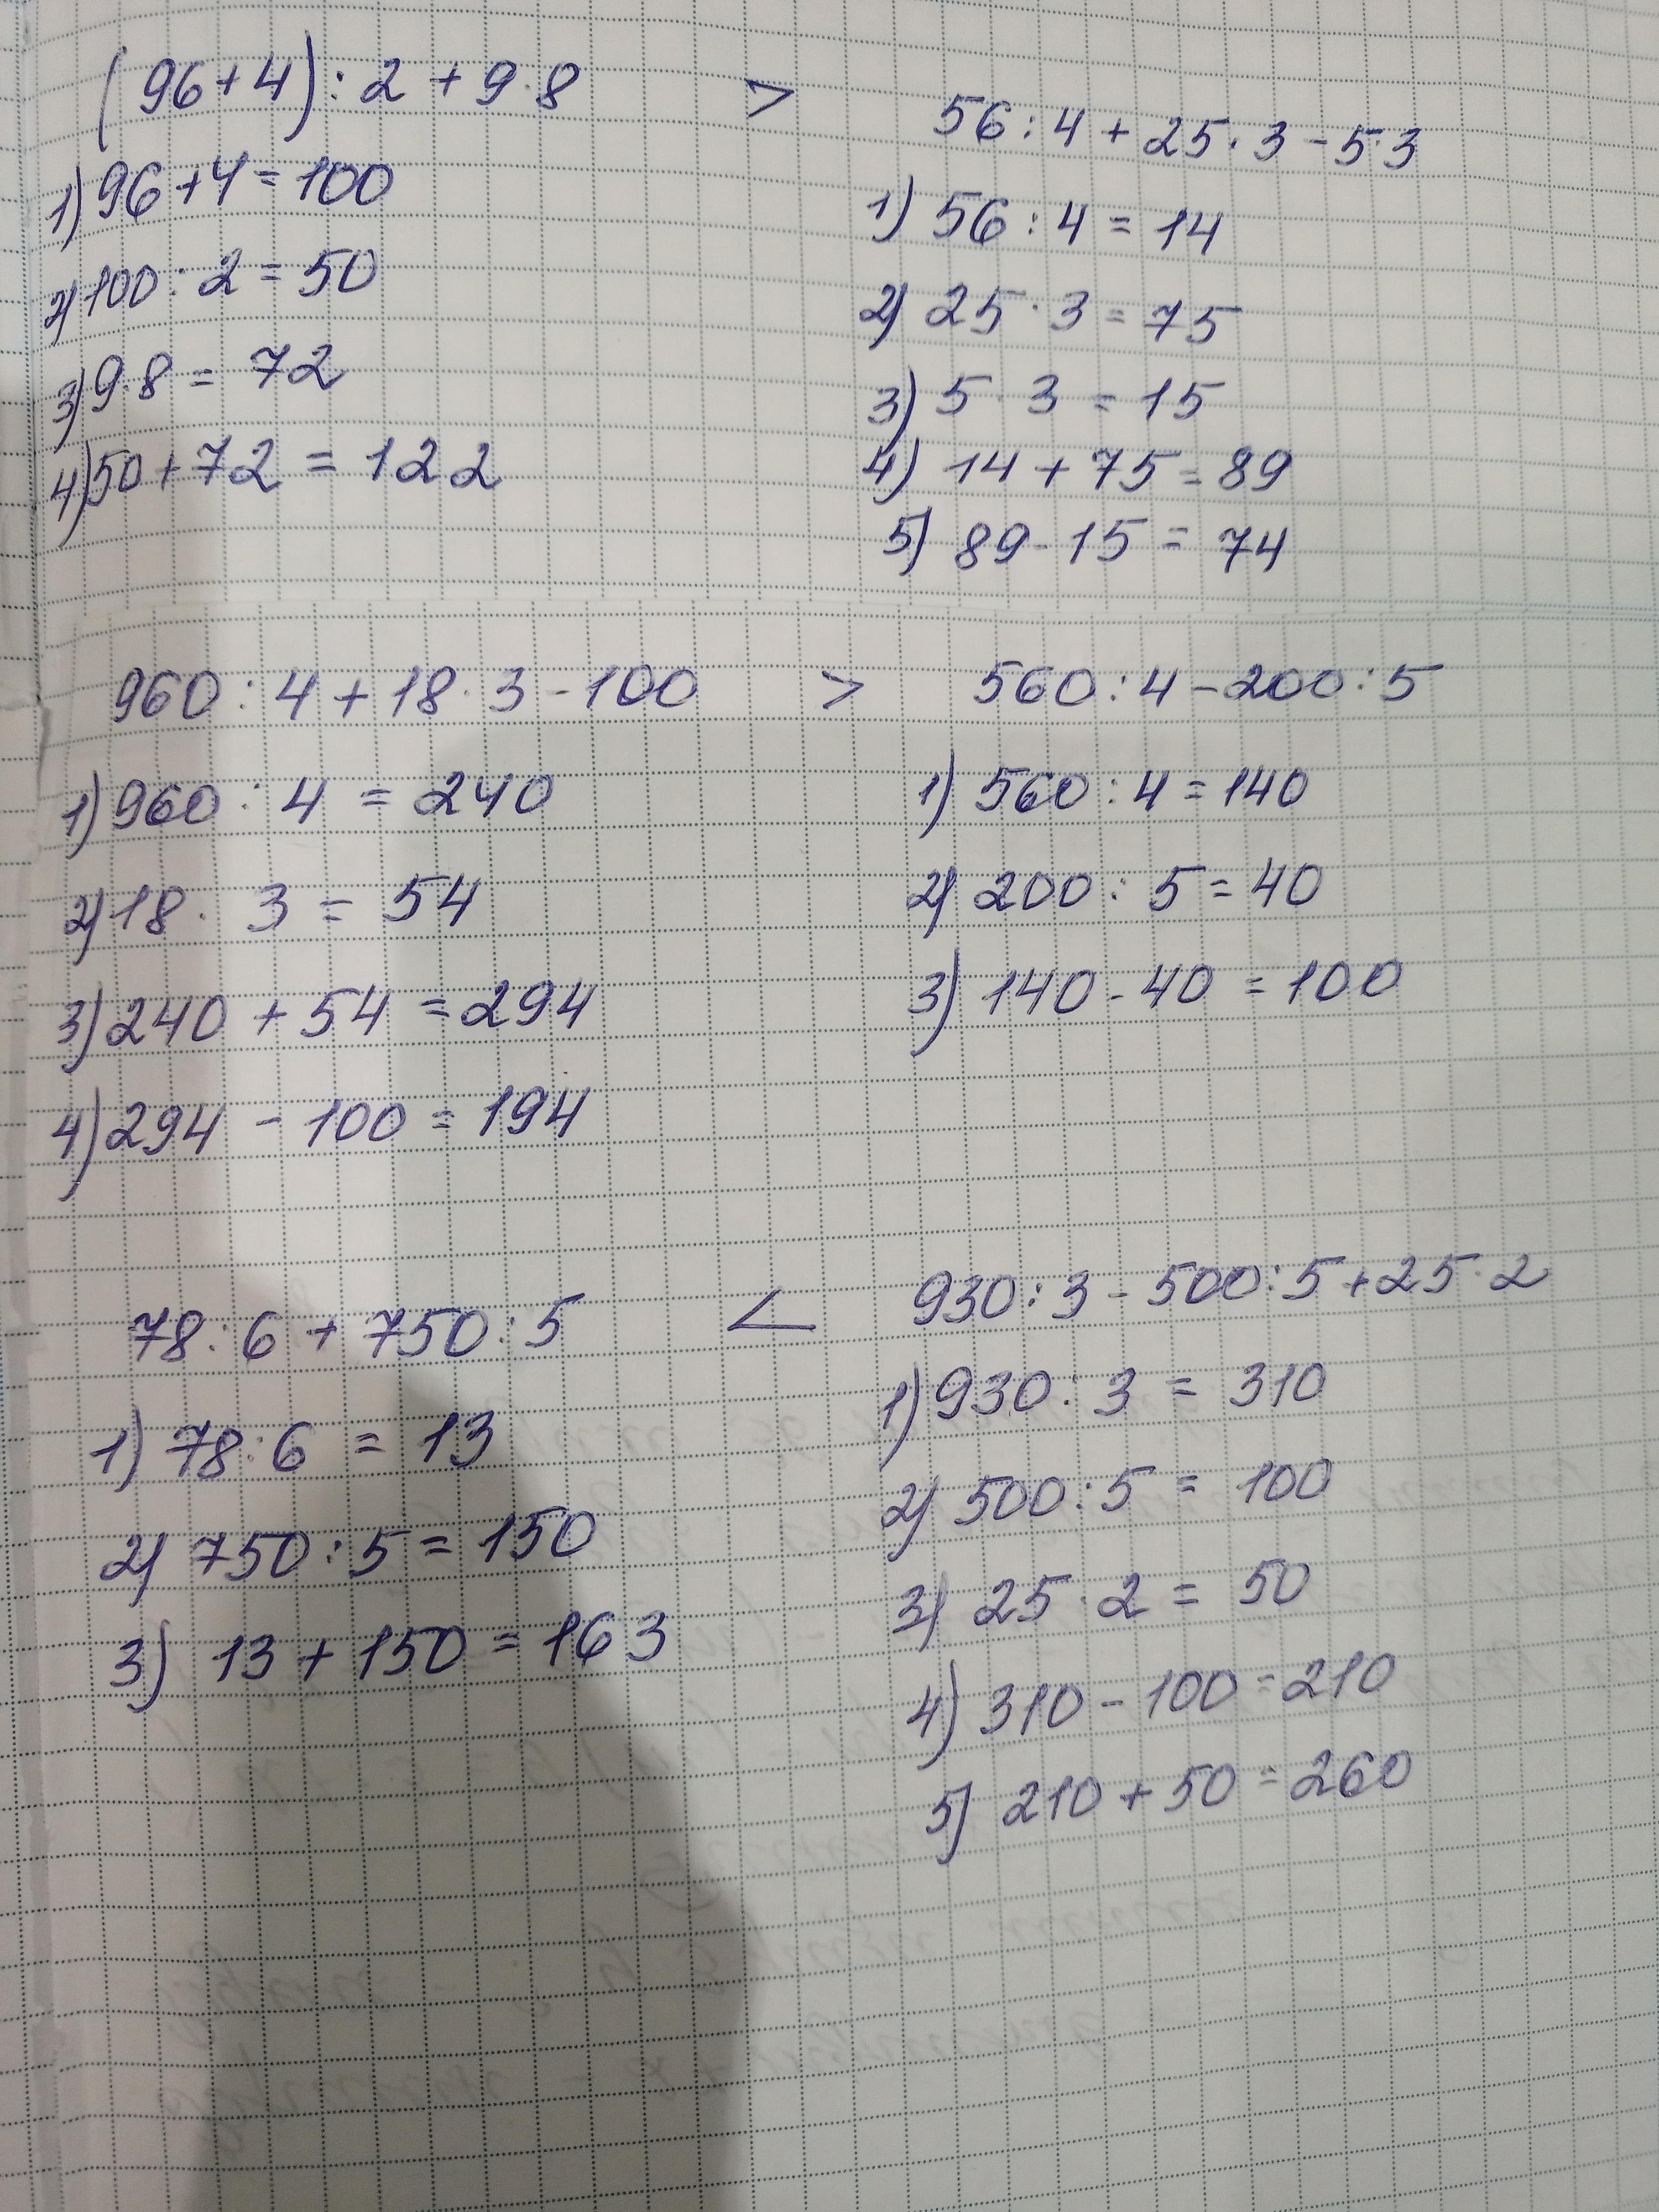 (96+4):2+9·8 > 56:4+25·3-5·3
1) 96+4=100
2) 100:2=50
3) 9·8=72
4) 50+72=122
1) 56:4=14
2) 25·3=75
3) 5·3=15
4) 14+75=89
5) 89-15=74
960:4+18·3-100 > 560:4-200:5
1) 960:4=240
2) 18·3=54
3) 240+54=294
4) 294-100=194
1) 560:4=140
2) 200:5=40
3) 140-40=100
78:6+750:5 < 930:3-500:5+25·2
1) 78:6=13
2) 750:5=150
3) 13+150=163
1) 930:3=310
2) 500:5=100
3) 25·2=50
4) 310-100=210
5) 210+50=260